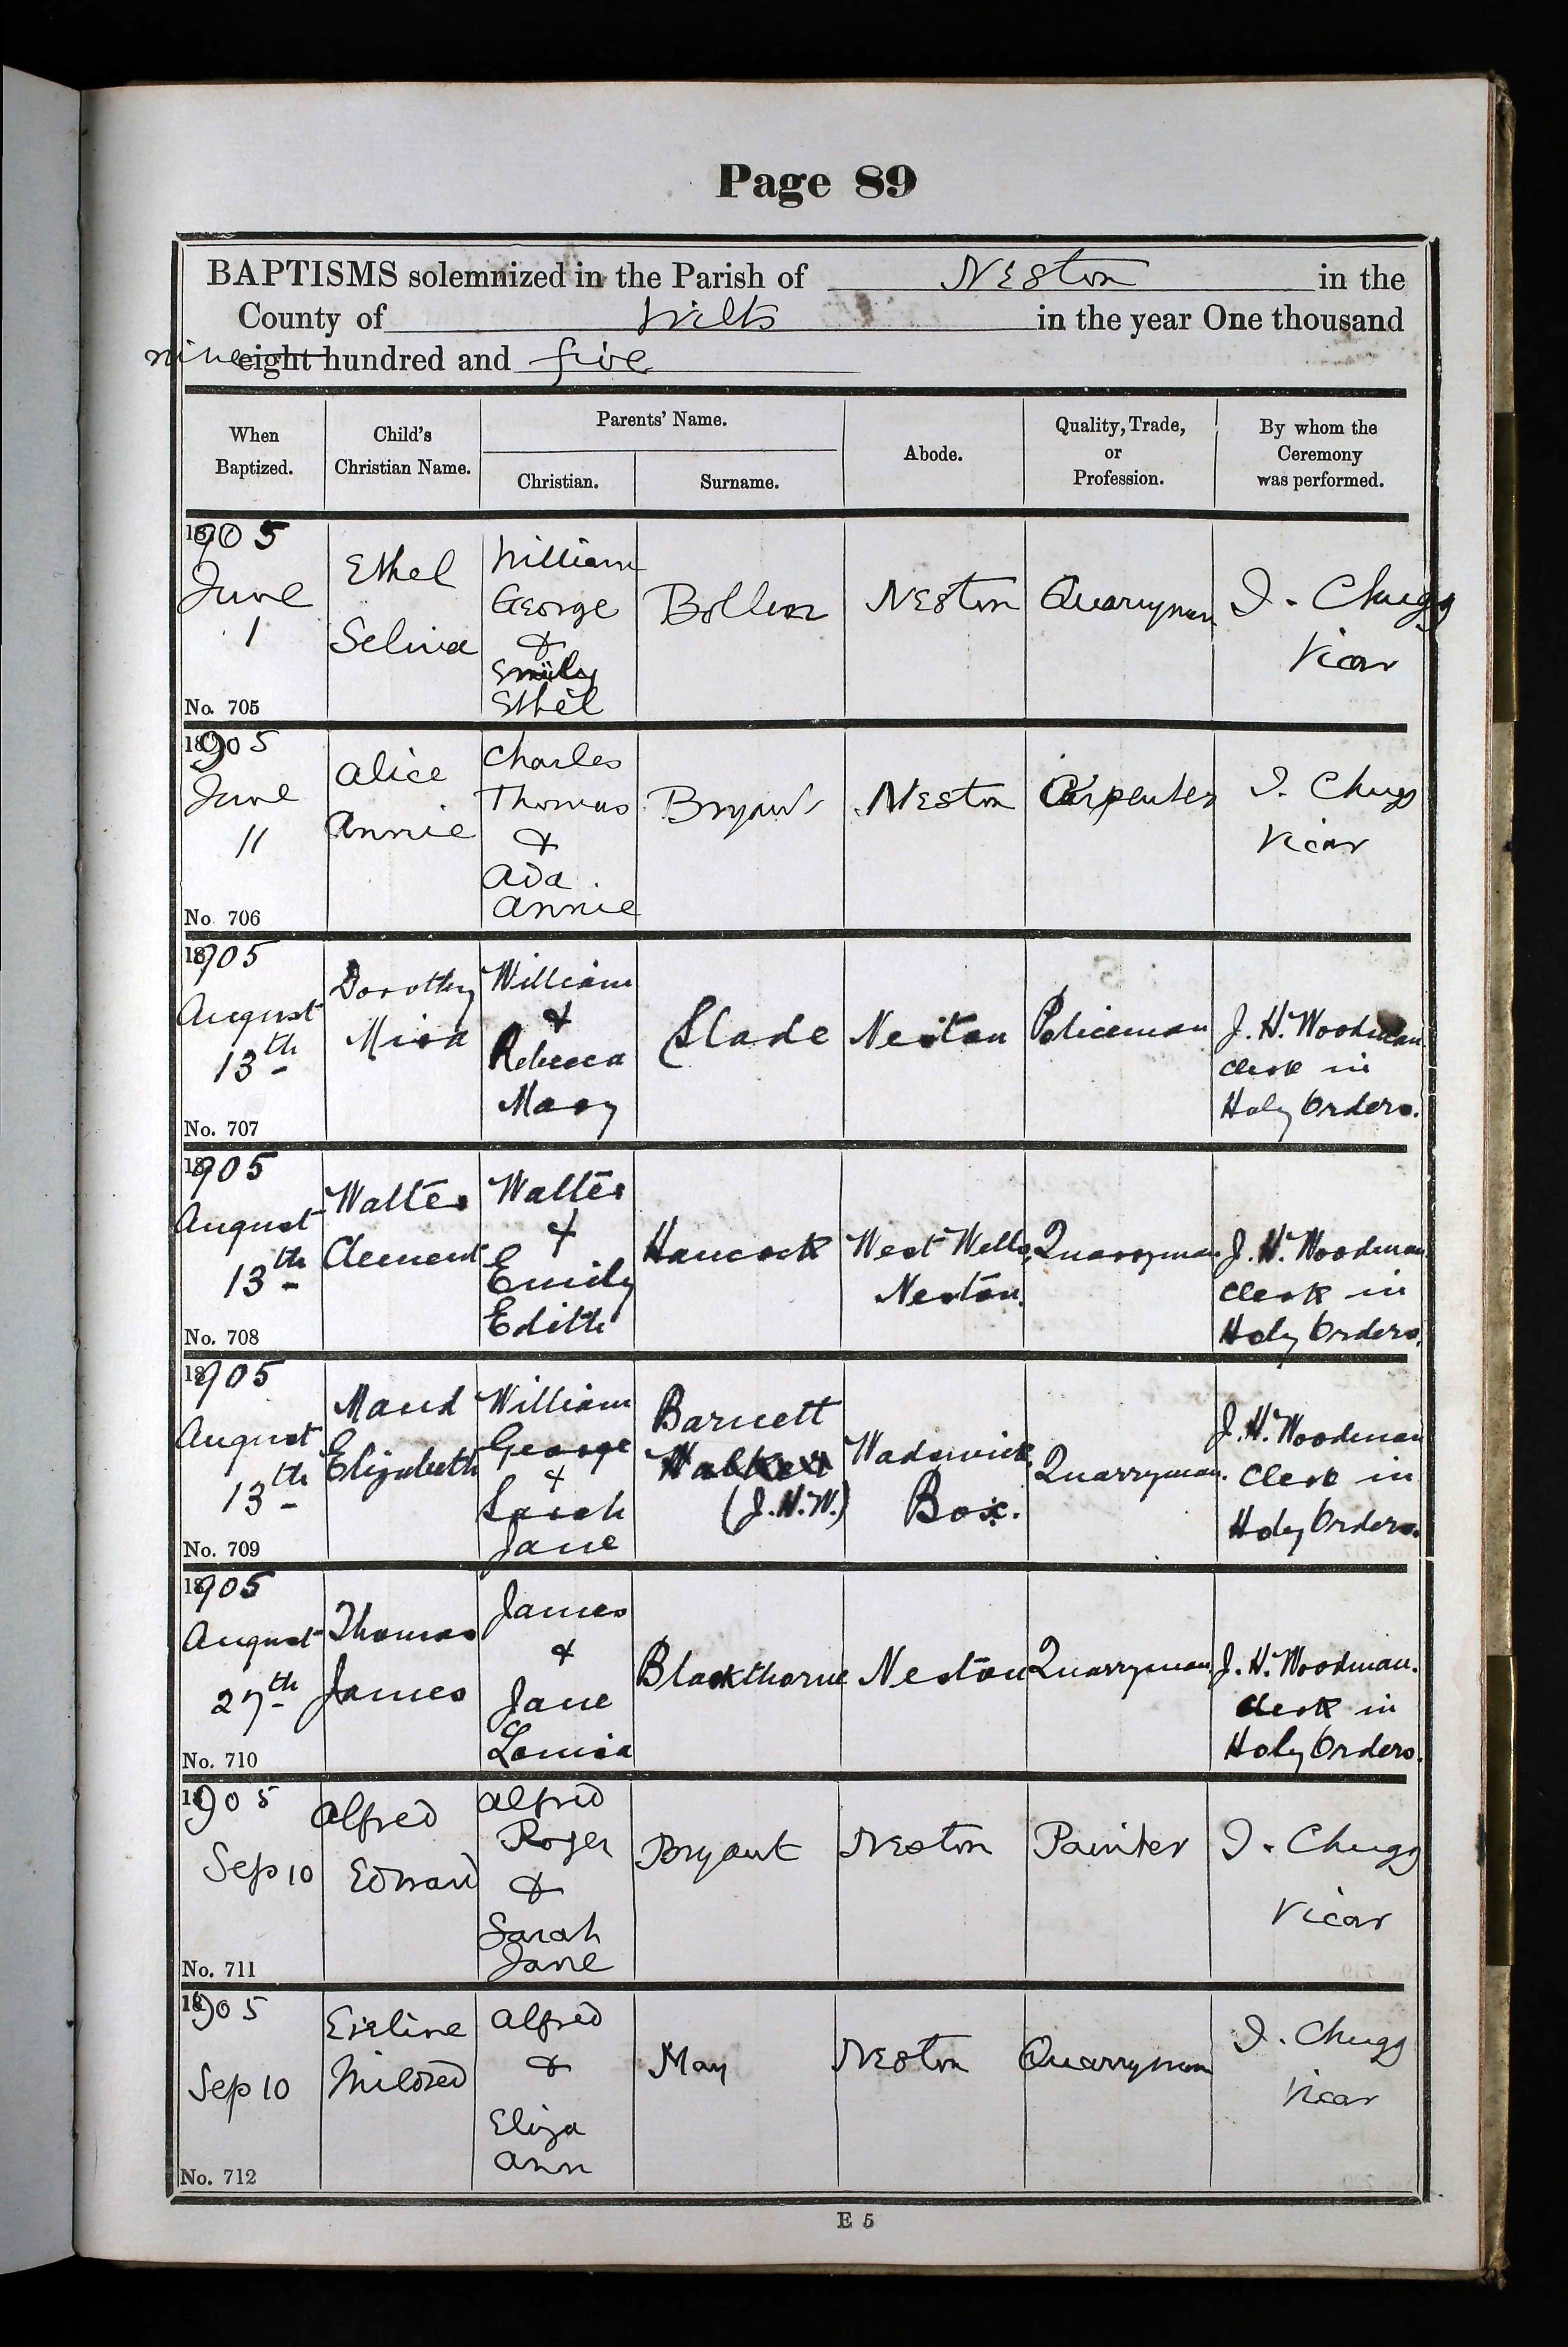 Page 89
BAPTISMS solemnized in the Parish of Neston in the
County of Wilts in the year One thousand
nine eight hundred and five
When Baptized.
Child's Christian Name.
Parents' Name.
Christian.
Surname.
Abode.
Quality, Trade, or Profession.
By whom the Ceremony was performed.
1905
June
1
No. 705
Ethel
Selina
William
George
&
Emily
Ethel
Neston
Quarryman
Chugg
Vicar
1905
June
11
No. 706
Alice
Annie
Charles
Thomas
&
Ada
Annie
Bryant
Neston
Carpenter
Chugg
Vicar
1905
August
13th
No. 707
Dorothy
William
&
Rebecca
Mary
Slade
Neston
Policeman
J. H. Woodman
Clerk in
Holy Orders.
1905
August
13th
No. 708
Walter
Clement
Walter
&
Emily
Edith
Hancock
West Wells,
Neston.
Quarryman
J. H. Woodman
Clerk in
Holy Orders.
1905
August
13th
No. 709
Maud
Elizabeth
William
George
&
Sarah
Jane
Barnett
Walker
(J.H.W.)
Wadswick,
Box.
Quarryman.
J. H. Woodman
Clerk in
Holy Orders.
1905
August
27th
No. 710
Thomas
James
James
&
Jane
Louisa
Blackthorne
Neston
Quarryman
J. H. Woodman.
Clerk in
Holy Orders.
1905
Sep 10
No. 711
Alfred
Edward
Alfred
Roger
&
Sarah
Jane
Bryant
Neston
Painter
Chugg
Vicar
1905
Sep 10
No. 712
Eveline
Mildred
Alfred
&
Eliza
Ann
May
Neston
Quarryman
Chugg
Vicar
E 5